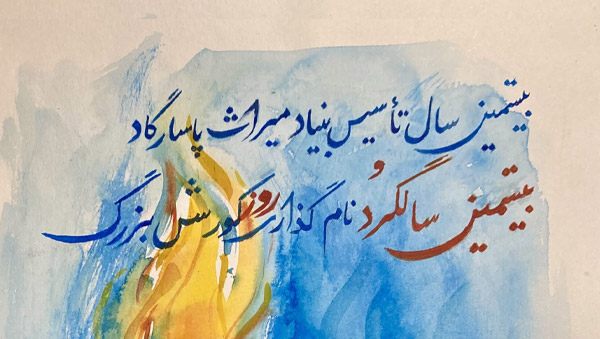 بیستمین سال تأسیس بنیاد میراث پاسارگاد
و
بیستمین سالگرد نام گذاری روز کورش بزرگ